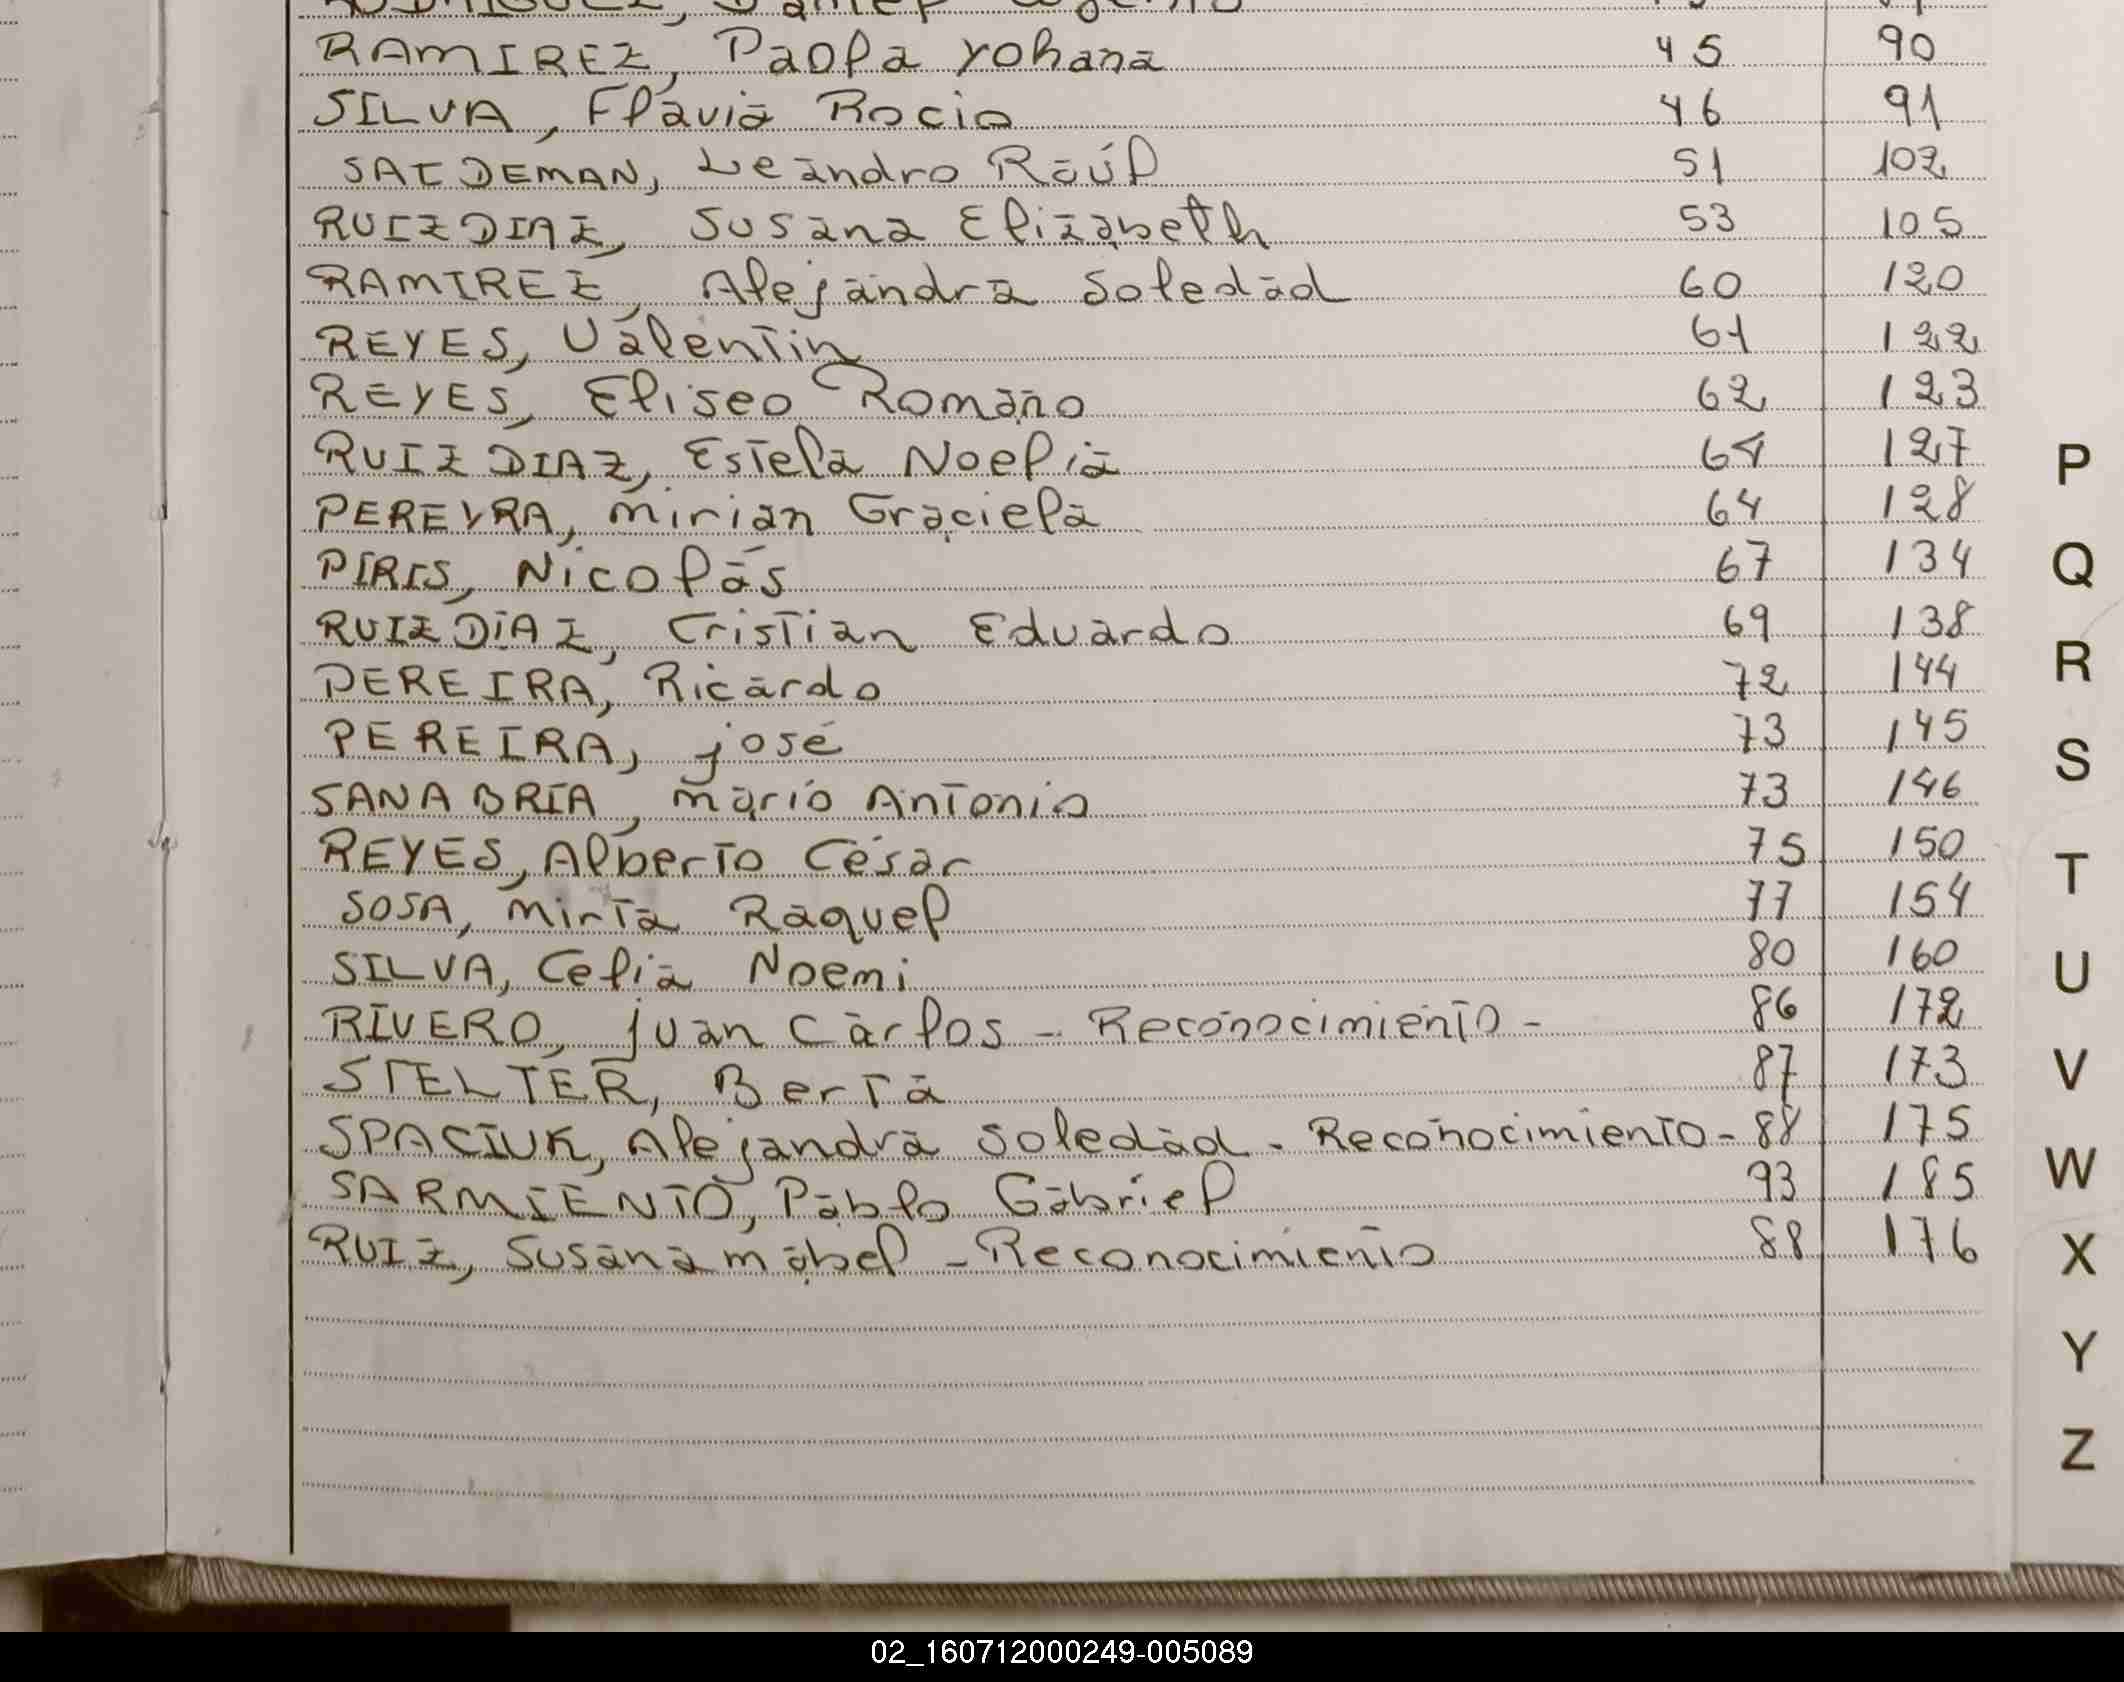 RAMIREZ, Paola Yohana 45 90
SILVA, Flavia Rocio 46 91
SAIDEMAN, Leandro Raúl 51 102
RUIZ DIAZ, Susana Elizabeth 53 105
RAMIREZ, Alejandra Soledad 60 120
REYES, Valentin 61 122
REYES, Eliseo Romano 62 123
RUIZ DIAZ, Estela Noelia 64 127
PEREYRA, Mirian Graciela 64 128
PIRIS, Nicolás 67 134
RUIZ DIAZ, Cristian Eduardo 69 138
PEREIRA, Ricardo 72 144
PEREIRA, José 73 145
SANABRIA, Mario Antonio 73 146
REYES, Alberto César 75 150
SOSA, Mirta Raquel 77 154
SILVA, Celia Noemi 80 160
RIVERO, Juan Carlos - Reconocimiento - 86 172
STELTER, Berta 87 173
SPACIUK, Alejandra Soledad - Reconocimiento - 88 175
SARMIENTO, Pablo Gabriel 93 185
RUIZ, Susana Mabel - Reconocimiento 88 176
P
Q
R
S
T
U
V
W
X
Y
Z
02_160712000249-005089